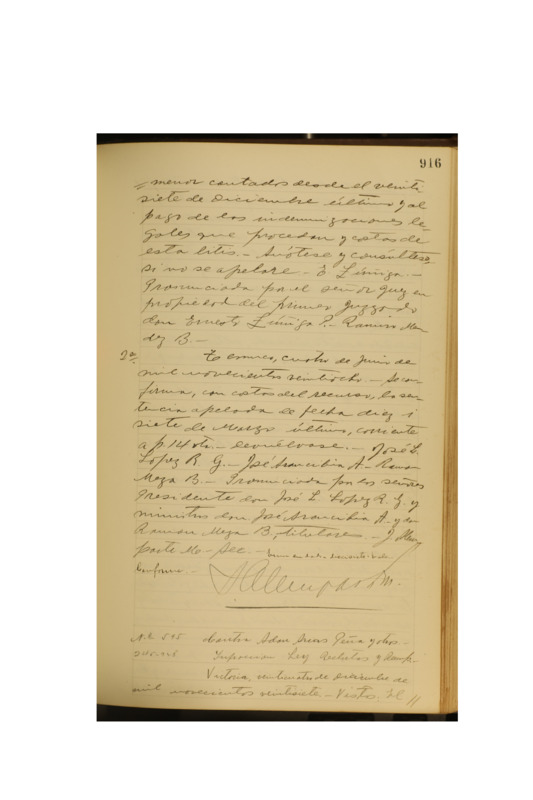 916
menor contados desde el veinti
siete de Diciembre último y al
pago de las indemnizaciones le-
gales que procedan y costas de
esta litis.- Anótese y consúltese
si no se apelare.- E Zúñiga.-
Pronunciada por el señor Juez en
propiedad del primer Juzgado
don Ernesto Zúñiga P.- Ramiro Men
dez B.-
2a. Temuco, cuatro de Junio de
mil novecientos veintiocho.- Se con-
firma, con costas del recurso, la sen-
tencia apelada de fecha diez i
siete de Marzo último, corriente
a f. 14 vta.- Devuélvase.- José L.
López R. G.- José Arancibia A.- Ramón
Meza B.- Pronunciada por los señores
Presidente don José L López R. G. y
ministros don José Arancibia A. y don
Ramón Meza B, titulares.- J
Sec.-
Conforme.-
N.o 515 Contra Adan Peña y otros.-
Infraccion Ley
Victoria, de Diciembre de
mil novecientos veintisiete.- Vistos: El //